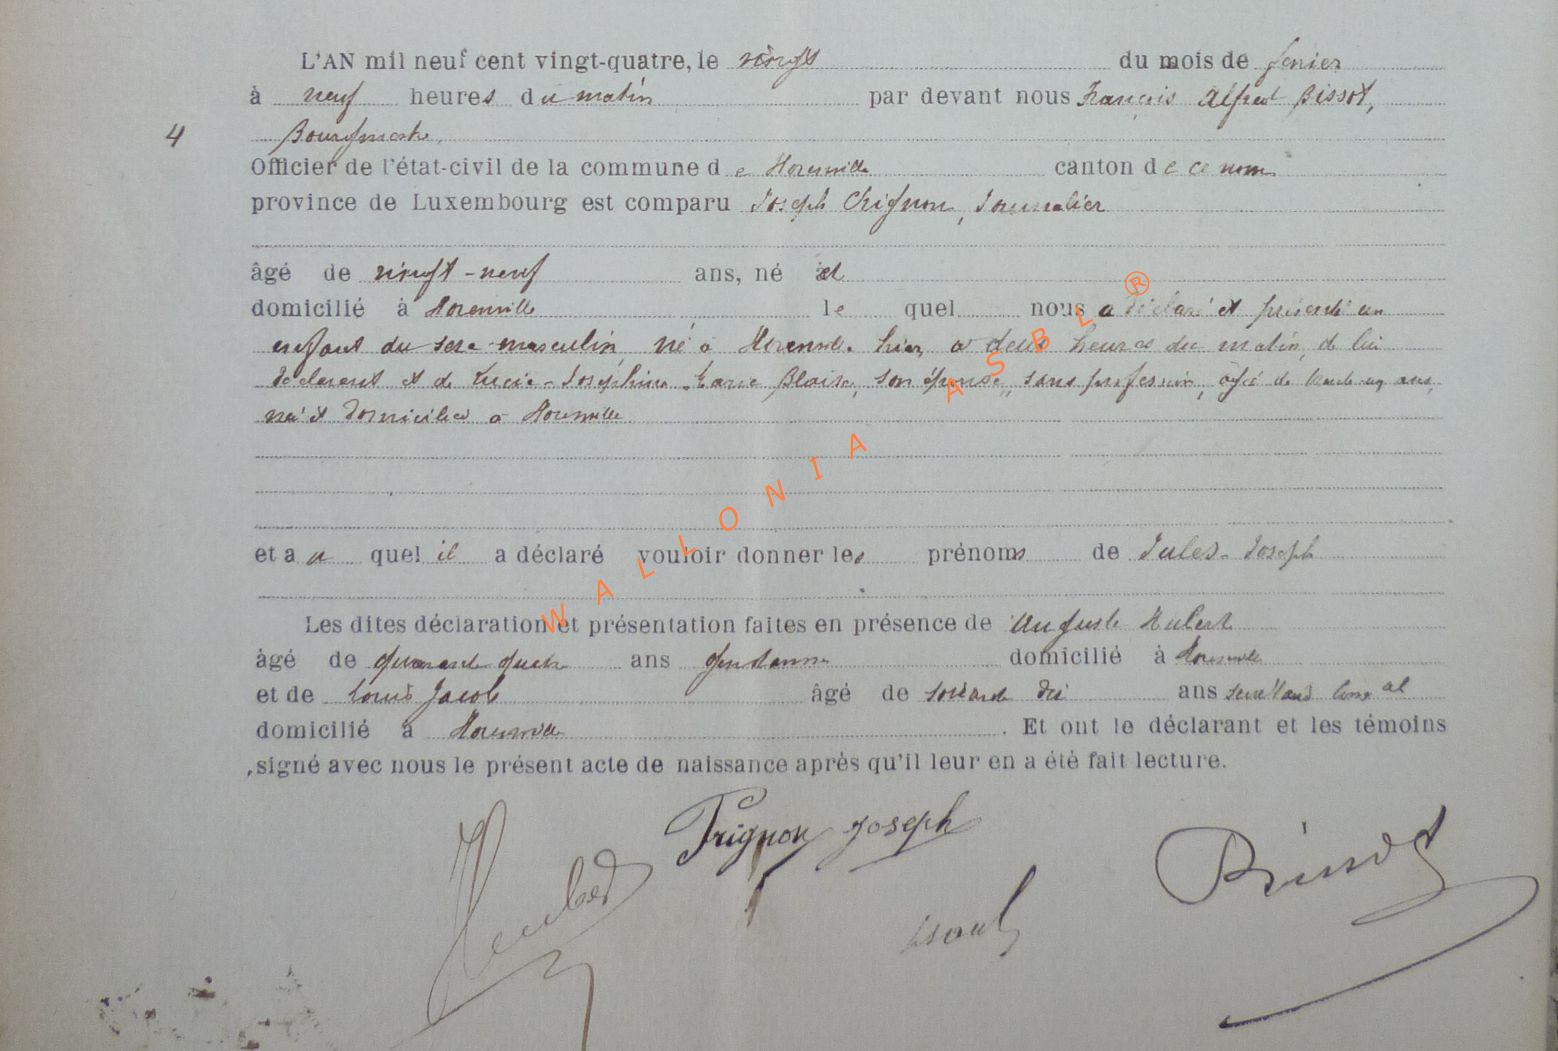 L'AN mil neuf cent vingt-quatre, le vingt du mois de fevrier
à neuf heures du matin par devant nous François Alfred Bissot,
4 Bourgmestre,
Officier de l'état-civil de la commune de Moremville canton de ce nom
province de Luxembourg est comparu Joseph Chignon, Journalier
âgé de vingt-neuf ans, né et
domicilié à le quel nous a déclaré et présenté un
enfant du sexe masculin, né à hier, à deux heures du matin, de lui
déclarant et de Lucie-Joséphine-Marie Blaise, son épouse, sans profession, âgée de trente-un ans,
née et domiciliée à
et a u quel il a déclaré vouloir donner les prénoms de Jules-Joseph
Les dites déclaration et présentation faites en présence de Auguste Hubert
âgé de quarante quatre ans gendarme domicilié à
et de Louis Jacob âgé de soixante dix ans communal
domicilié à . Et ont le déclarant et les témoins
signé avec nous le présent acte de naissance après qu'il leur en a été fait lecture.
Hubert Trignon Joseph Bissot
WALLONIA ASBL ®